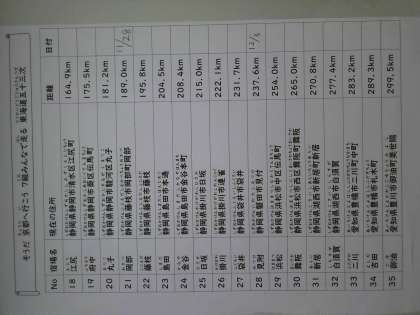 そうだ 京都へ行こう 7組みんなで走る 東海道五十三次
No 宿場名 現在の住所 距離 日付
18 江尻 静岡県静岡市清水区江尻町 164.9km
19 府中 静岡県静岡市葵区伝馬町 175.5km
20 丸子 静岡県静岡市駿河区丸子 181.2km
21 岡部 静岡県藤枝市岡部町岡部 189.0km 11/28
22 藤枝 静岡県藤枝市藤枝 195.8km
23 島田 静岡県島田市本通 204.5km
24 金谷 静岡県島田市金谷本町 208.4km
25 日坂 静岡県掛川市日坂 215.0km
26 掛川 静岡県掛川市連雀 222.1km
27 袋井 静岡県袋井市袋井 231.7km
28 見附 静岡県磐田市見付 237.6km 12/5
29 浜松 静岡県浜松市中区伝馬町 254.0km
30 舞阪 静岡県浜松市西区舞阪町舞阪 265.0km
31 新居 静岡県湖西市新居町新居 270.8km
32 白須賀 静岡県湖西市白須賀 277.4km
33 二川 愛知県豊橋市二川町中町 283.2km
34 吉田 愛知県豊橋市札木町 289.3km
35 御油 愛知県豊川市御油町美世賜 299.5km